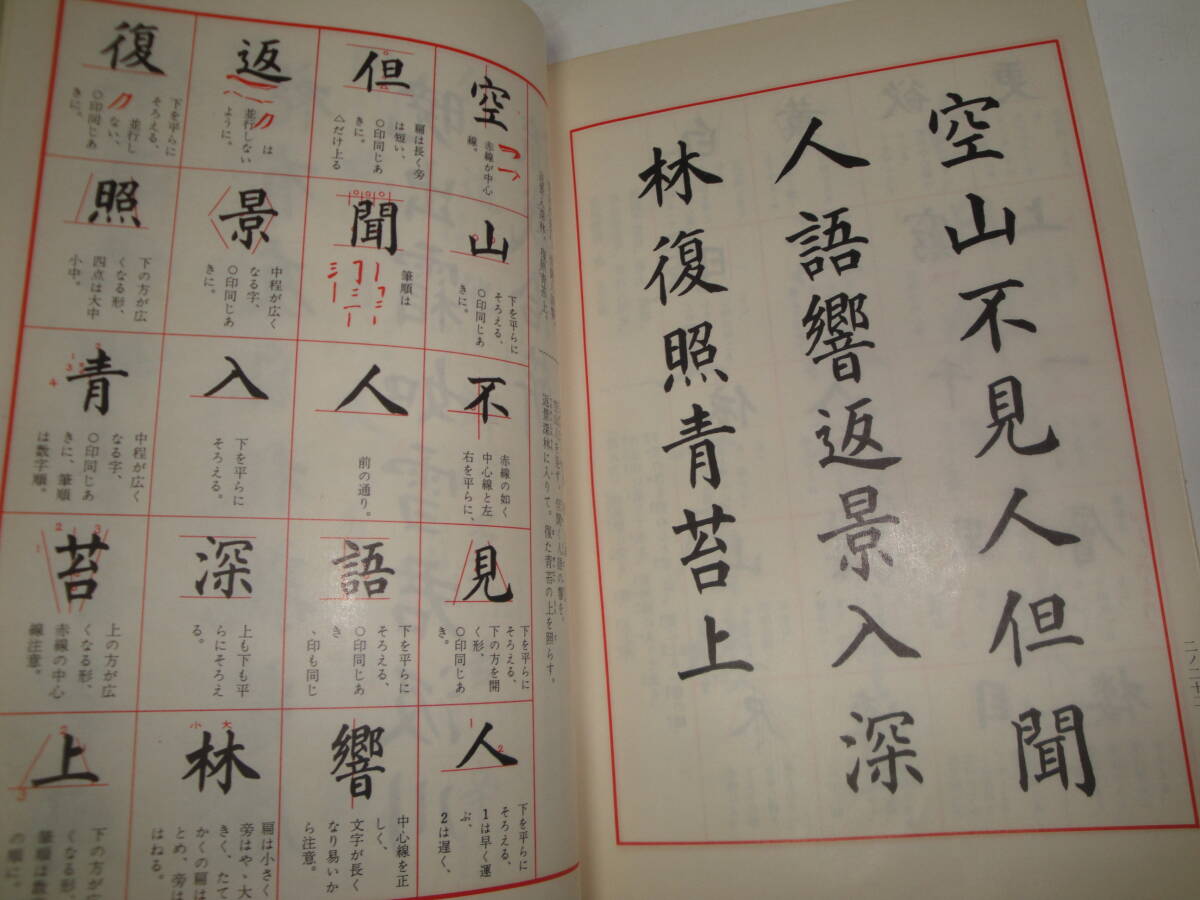 空山不見人但聞
人語響返景入深
林復照青苔上
返景深林に入りて。復た青苔の上を照らす。
空
赤線が中心
線。
山
下を平らに
そろえる、
○印同じあ
きに。
不
赤線の如く
中心線と左
右を平らに、
見
下を平らに
そろえる、
下の方を開
く形、
○印同じあ
き。
人
1
2
下を平らに
そろえる、
1は早く運
ぶ、
2は遅く、
但
扁は長く旁
は短い、
○印同じあ
きに。
△だけ上る
聞
筆順は
人
前の通り。
語
下を平らに
そろえる、
○印同じあ
き
、印も同じ
響
中心線を正
しく、
文字が長く
なり易いか
ら注意。
返
は
並行しない
ように。
景
中程が広く
なる字、
○印同じあ
きに。
入
下を平らに
そろえる。
深
上も下も平
らにそろえ
る。
林
小 大
扁は小さく
旁はやゝ大
きく、たて
かくの扁は
とめ、旁は
はねる。
復
下を平らに
そろえる、
並行し
ない、
○印同じあ
きに。
照
下の方が広
くなる形、
四点は大中
小中。
青
中程が広く
なる字、
○印同じあ
きに、筆順
は数字順。
苔
2
3
1
上の方が広
くなる形、
赤線の中心
線注意。
上
2
3
下の方が広
くなる形、
筆順は数
の順に。